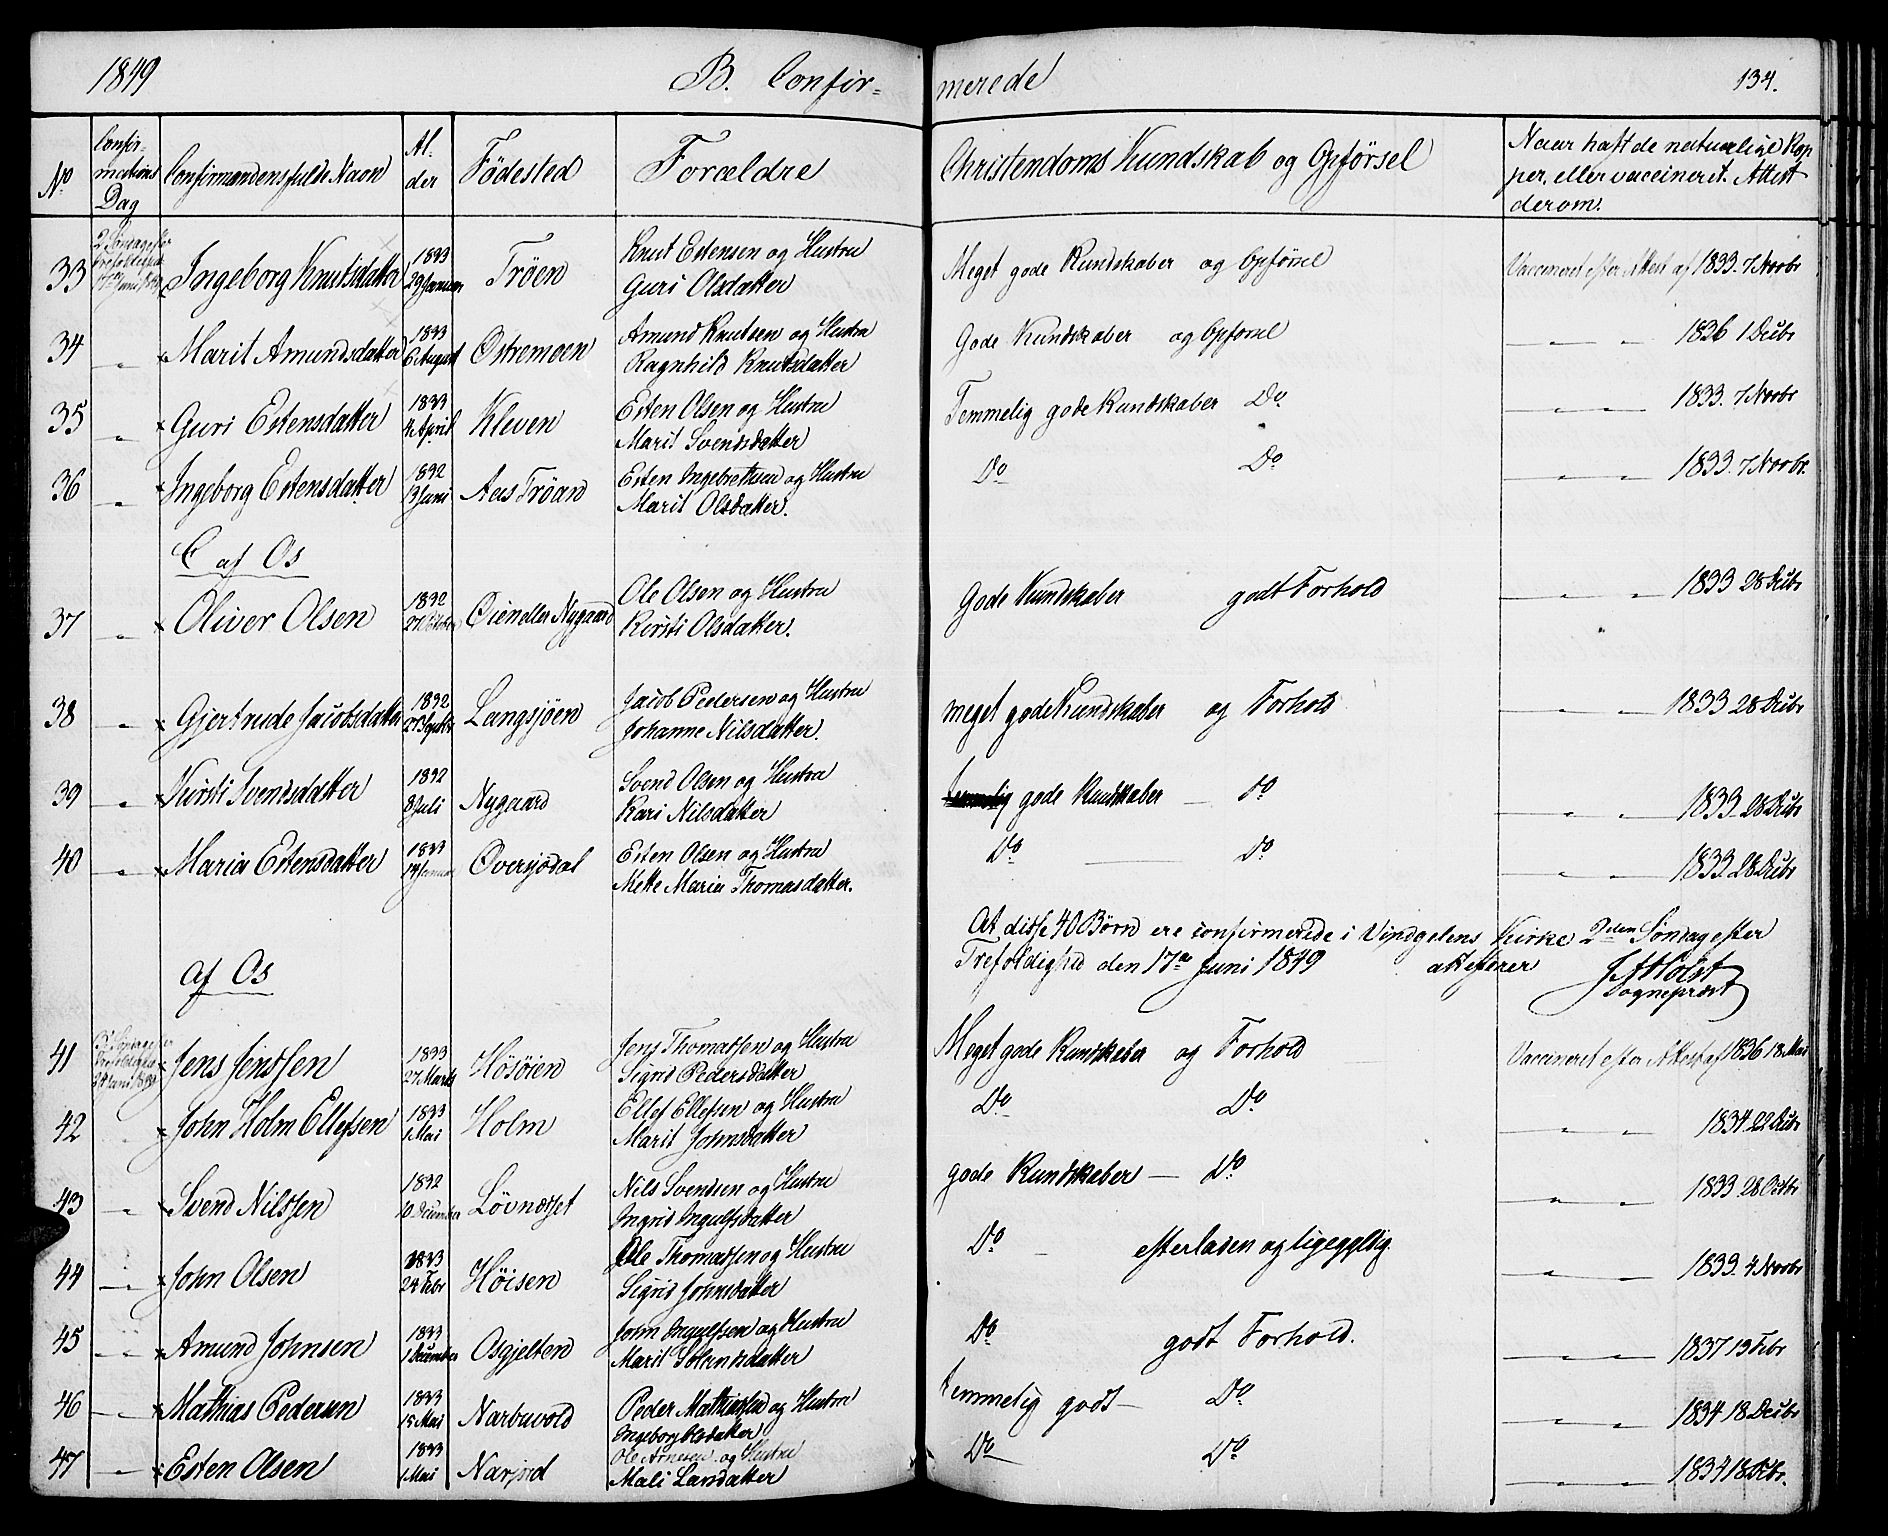 1849 B. Confir= merede 134.
No Confir-mations Dag Confirmandens fulde Navn Al-der Födested Forældre Christendoms Kundskab og Opförsel Naar haft de naturlige Kopper, eller vaccineret. Attest derom.
33 Ingeborg Knutsdatter 1833 29 Januar Tröen Knut Estensen og Hustru Guri Olsdatter Meget gode Kundskaber og Opförsel Vaccineret efter Attest af 1833. 7 Novbr
34 " Marit Amundsdatter 1833 6 August Østremoen Amund Knutsen og Hustru Ragnhild Knutsdatter Gode Kundskaber og Opførsel " " " 1836 1 Decbr
35 " Guri Estensdatter 1833 4 April Kleven Esten Olsen og Hustru Marit Svendsdatter Temmelig gode Kundskaber Do " " " 1833. 7 Novbr
36 " Ingeborg Estensdatter 1832 13 Juni Aas Tröan Esten Ingebrethsen og Hustru Marit Olsdatter. Do Do " " " 1833. 7 Novbr.
C af Os
37 " Oliver Olsen 1832 Øien eller Nygaard Ole Olsen og Hustru Kirsti Olsdatter. Gode Kundskaber godt Forhold " " 1833 28 Decbr
38 " Gjertrude Jacobsdatter 1832 Langsjöen Jacob Pedersen og Hustru Johanne Nilsdatter. meget gode Kundskaber og Forhold " " " 1833 28 Decbr
39 " Kirsti Svendsdatter 1832 8 Juli Nygaard Svend Olsen og Hustru Kari Nilsdatter gode Kundskaber — do " " " 1833 28 Decbr
40 " Maria Estensdatter 1833 14 Januar Øversjødal Esten Olsen og Hustru Mette Maria Thomasdatter. Do Do " " " 1833. 28 Decbr
At disse 40 Børn ere confirmerede i Vingelens Kirke 2den Søndag efter
Trefoldighed den 17de Juni 1849 attesterer
Sogneprest
af Os
41 Jens Jenssen 1833 27 Marts Hösöien Jens Thomassen og Hustru Sigrid Pedersdatter Meget gode Kundskaber og Forhold Vaccineret efter Attest af 1836 18 Mai
42 John Holm Ellefsen 1833 1 Mai Holm Ellef Ellefsen og Hustru Marit Johnsdatter Do Do " " " 1834 22 Decbr
43 " Svend Nilssen 1832 10 December Lövnæsset Nils Svendsen og Hustru Ingrid Ingulfsdatter gode Kundskaber — Do " " 1833 28 Octbr
44 " John Olsen 1833 24 Febr Höisen Ole Thomassen og Hustru Sigrid Johnsdatter Do — efterladen og ligegyldig " " 1833. 4 Novbr
45 " Amund Johnsen 1833 1 December Osgjelten John Ingulfsen og Hustru Marit Do godt Forhold. " " " 1837 13 Febr
46 " Mathias Pedersen 1833 15 Mai Narbuvold Peder Mathiassen og Hustru Ingeborg Olsdatter temmelig godt — Do " " " 1834 18 Decbr
47 " Esten Olsen 1833 1 Mai Ole Arnesen og Hustru Mali Larsdatter Do Do " " " 1834 18 Decbr.